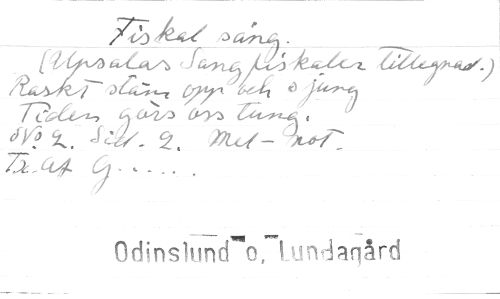 Fiskal sång.
(Upsalas Sangfiskaler tillegnad.)
Raskt stäm opp och sjung
Tiden görs oss tung.
No 2. Sid. 2. Mel-not.
Tx. af G......
Odinslund o, Lundagård